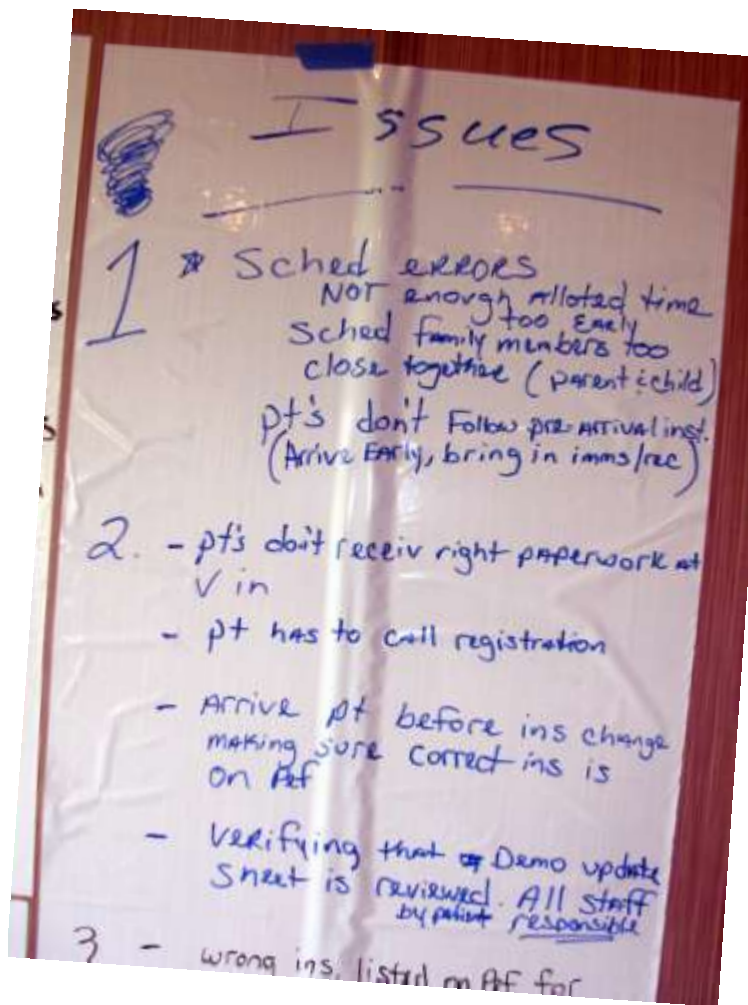 Issues
1 * Sched errors
NOT enough Alloted time
too Early
Sched family members too
close together (parent & child)
pt's don't Follow pre-Arrival inst.
(Arrive Early, bring in imms/rec)
2. - pt's do'it receiv right paperwork at
✓ in
- pt has to call registration
- Arrive pt before ins change
making sure correct ins is
on Pef
- Verifying that Demo update
Sheet is reviewed. All staff
by patient responsible
3 - wrong ins. listed on Pef for